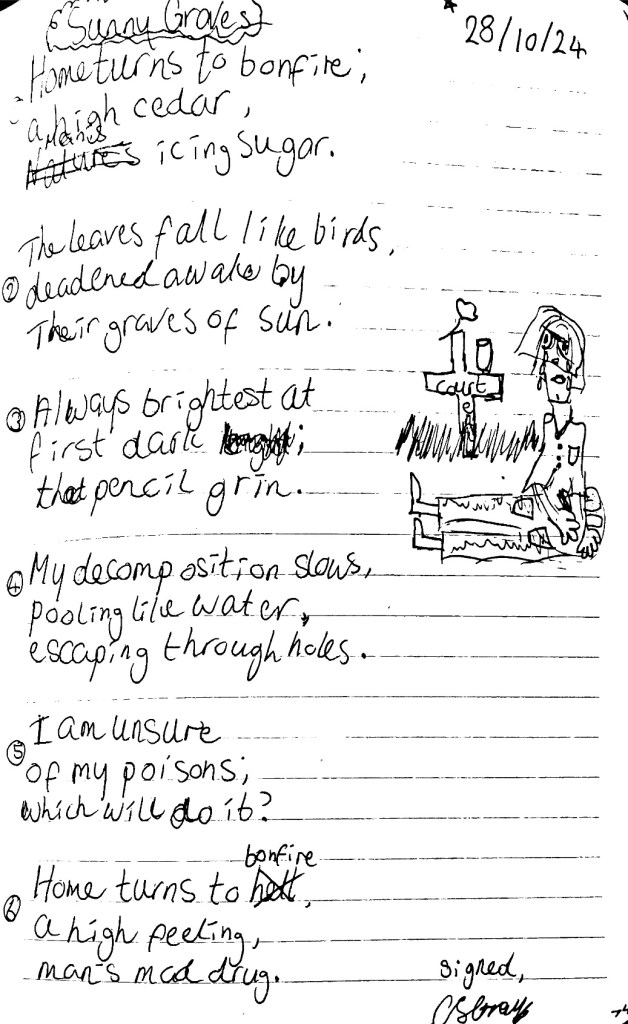 Sunny Graves
28/10/24
Home turns to bonfire;
a high cedar,
Man's
Nature's icing sugar.
The leaves fall like birds,
② deadened awake by
Their graves of sun.
③ Always brightest at
first dark ;
that pencil grin.
court
④ My decomposition slows,
pooling like water,
escaping through holes.
⑤ I am unsure
of my poisons;
which will do it?
bonfire
⑥ Home turns to hell,
a high peeling,
man's mad drug.
signed,